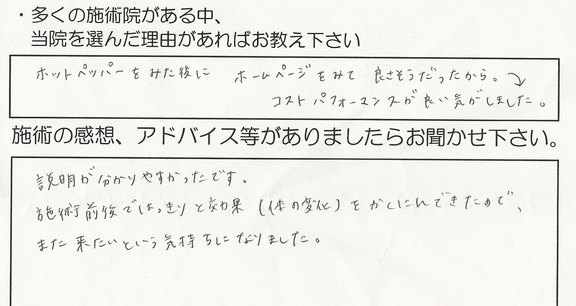 ・多くの施術院がある中、
当院を選んだ理由があればお教え下さい
ホットペッパーをみた後に ホームページをみて 良さそうだったから。
コストパフォーマンスが良い気がしました。
施術の感想、アドバイス等がありましたらお聞かせ下さい。
説明が分かりやすかったです。
施術前後ではっきりと効果(体の変化)をかくにんできたので、
また来たいという気持ちになりました。